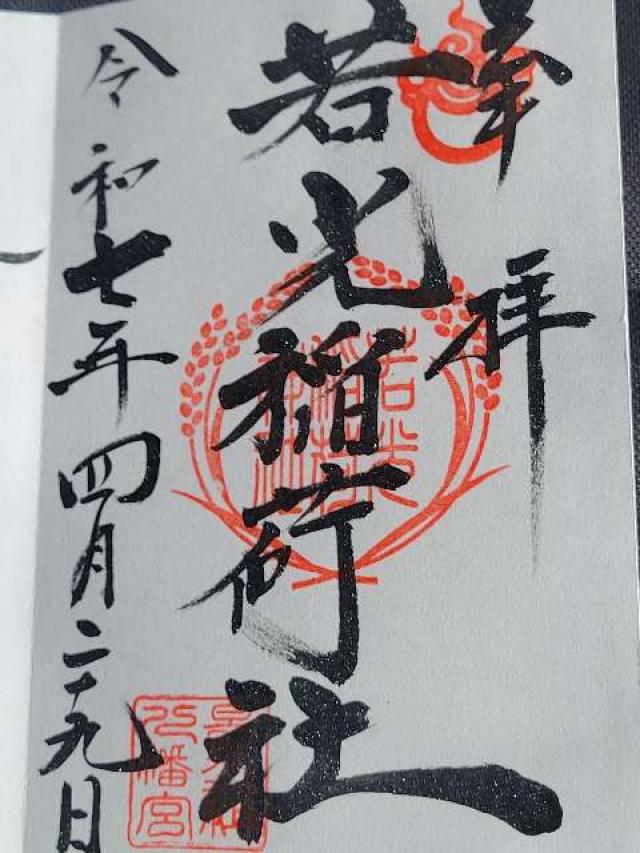 奉拝
若光稲荷社
令和七年四月二十九日
若光稲荷社
八幡宮